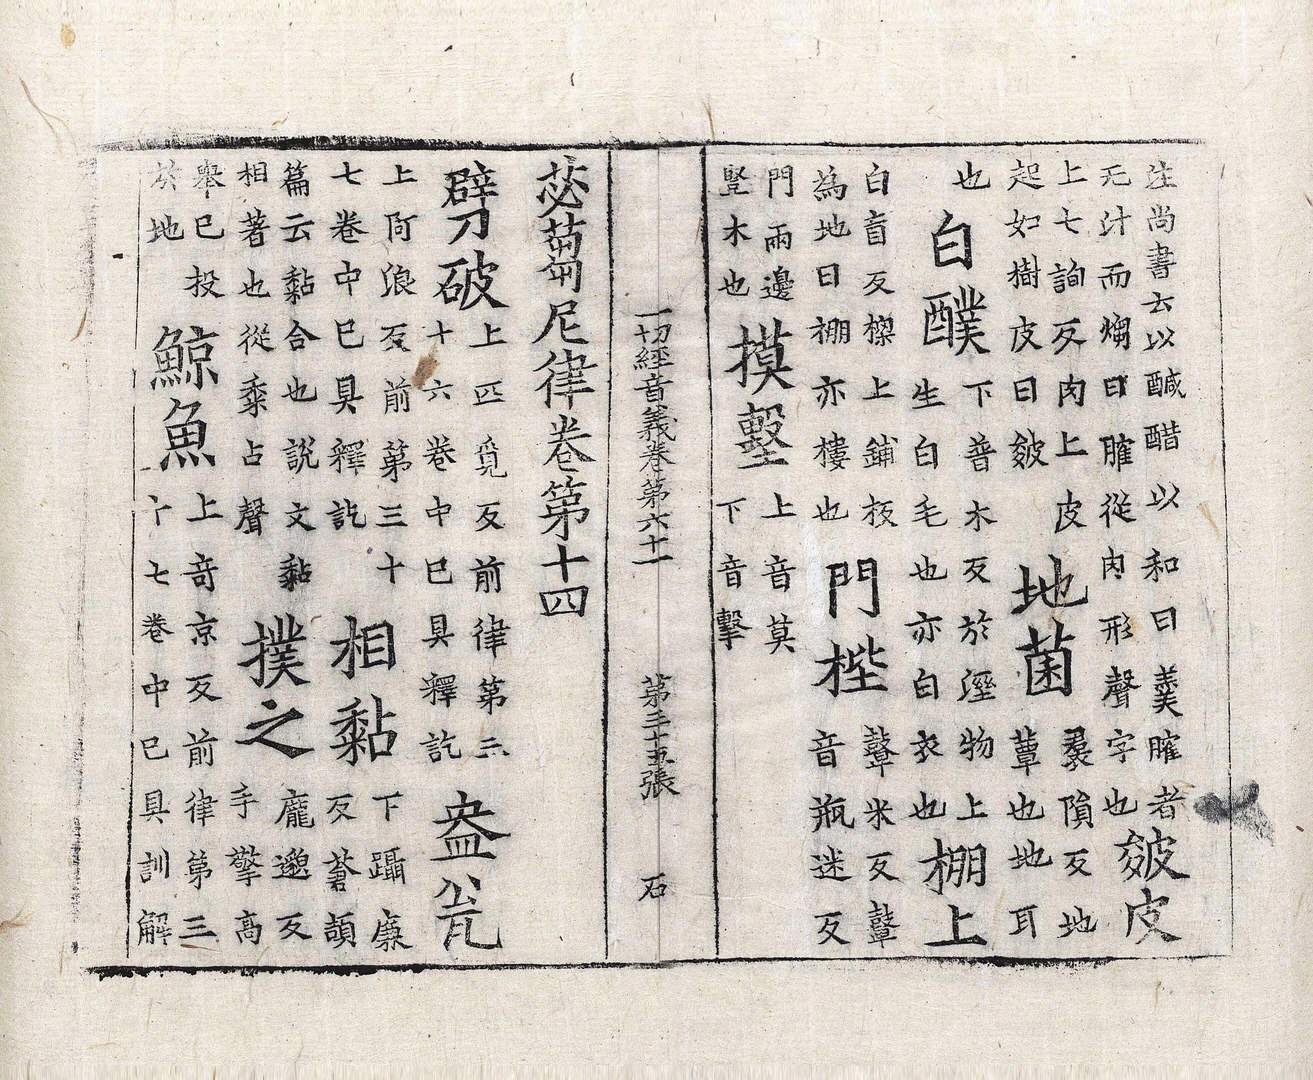 注尚書云以醎醋以和曰羹臛者
无汁而曰臛從肉形聲字也
皴皮
上七詢反肉上皮
起如樹皮曰皴
地菌
羣隕反地
蕈也地耳
也
白醭
下普木反於溼物上
生白毛也亦白衣也
棚上
白盲反樑上鋪板
為地曰棚亦樓也
門梐
鼙米反鼙
音瓶迷反
門兩邊
竪木也
摸墼
上音莫
下音擊
一切經音義卷第六十一 第三十五張 石
苾蒭尼律卷第十四
劈破
上匹覓反前律第三
十六卷中已具釋訖
盎瓮
上阿浪反前第三十
七卷中已具釋訖
相黏
下躡廉
反蒼頡
篇云黏合也說文黏
相著也從黍占聲
撲之
龐邈反
手擎高
舉已投
於地
鯨魚
上竒京反前律第三
十七卷中已具訓解